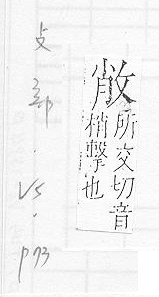 所交切音
梢擊也
攴部.V5.p73